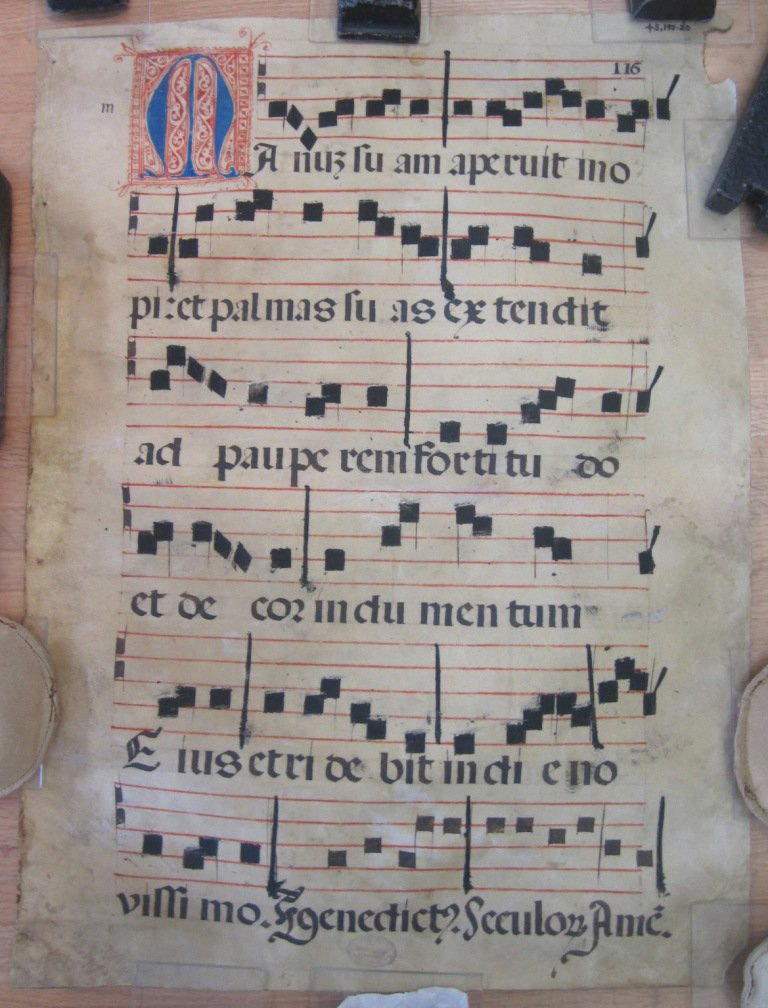 43.145-20
116
m
MAnuʒ su am aperuit mo
pi: et palmas su as ex tendit
ad paupe rem fortitu do
et de coꝛ indu men tum
Eius et ri de bit in di e no
vissi mo. Seculoꝝ Amē.